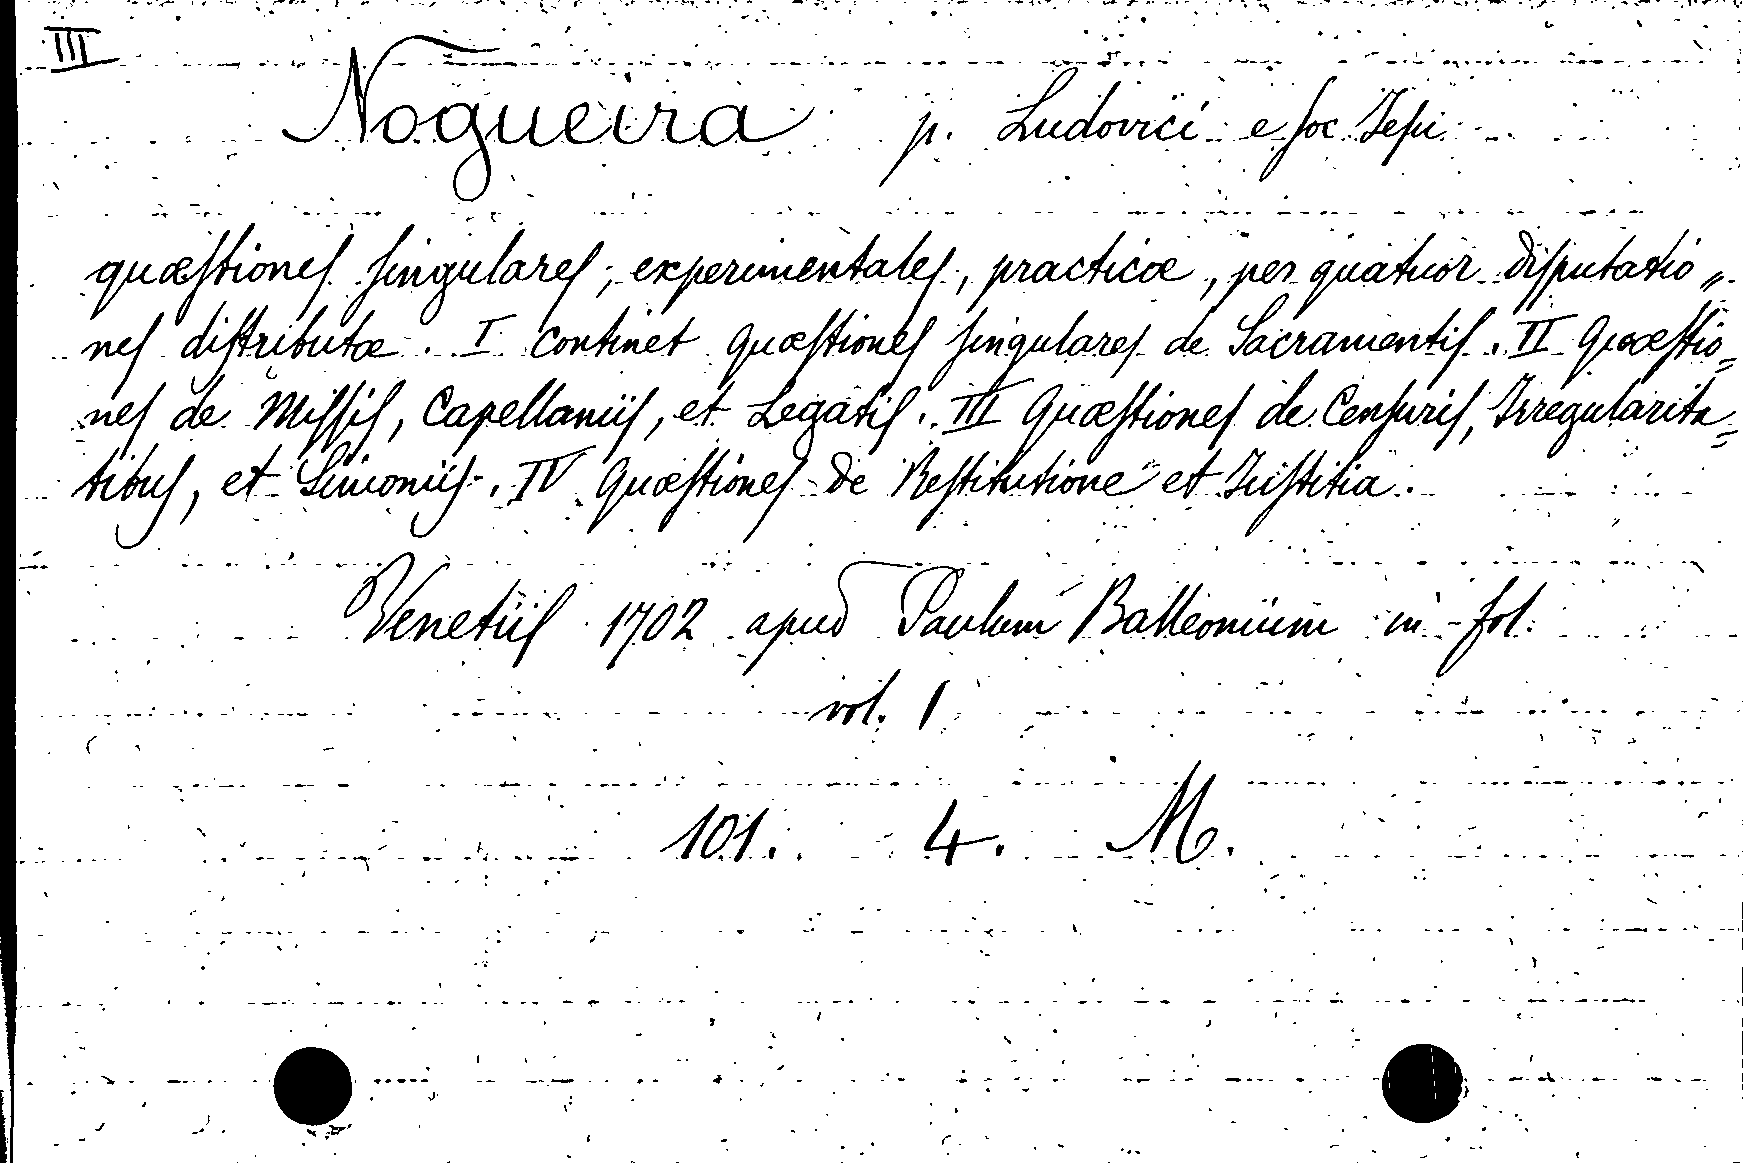 III
Nogueira p. Ludovici e soc Jesu
quæstiones singulares, experimentales, practicæ, per quatuor disputatio„
nes distributæ. I continet quæstiones singulares de Sacramentis. II Quæstio=
nes de Missis, Capellaniis, et Legatis. III Quæstiones de Censuris, Irregularita=
tibus, et Simoniis. IV Quæstiones de Restitutione et Justitia.
Venetiis 1702 apud Paulum Balleonium in fol.
vol. 1
101. 4. M.